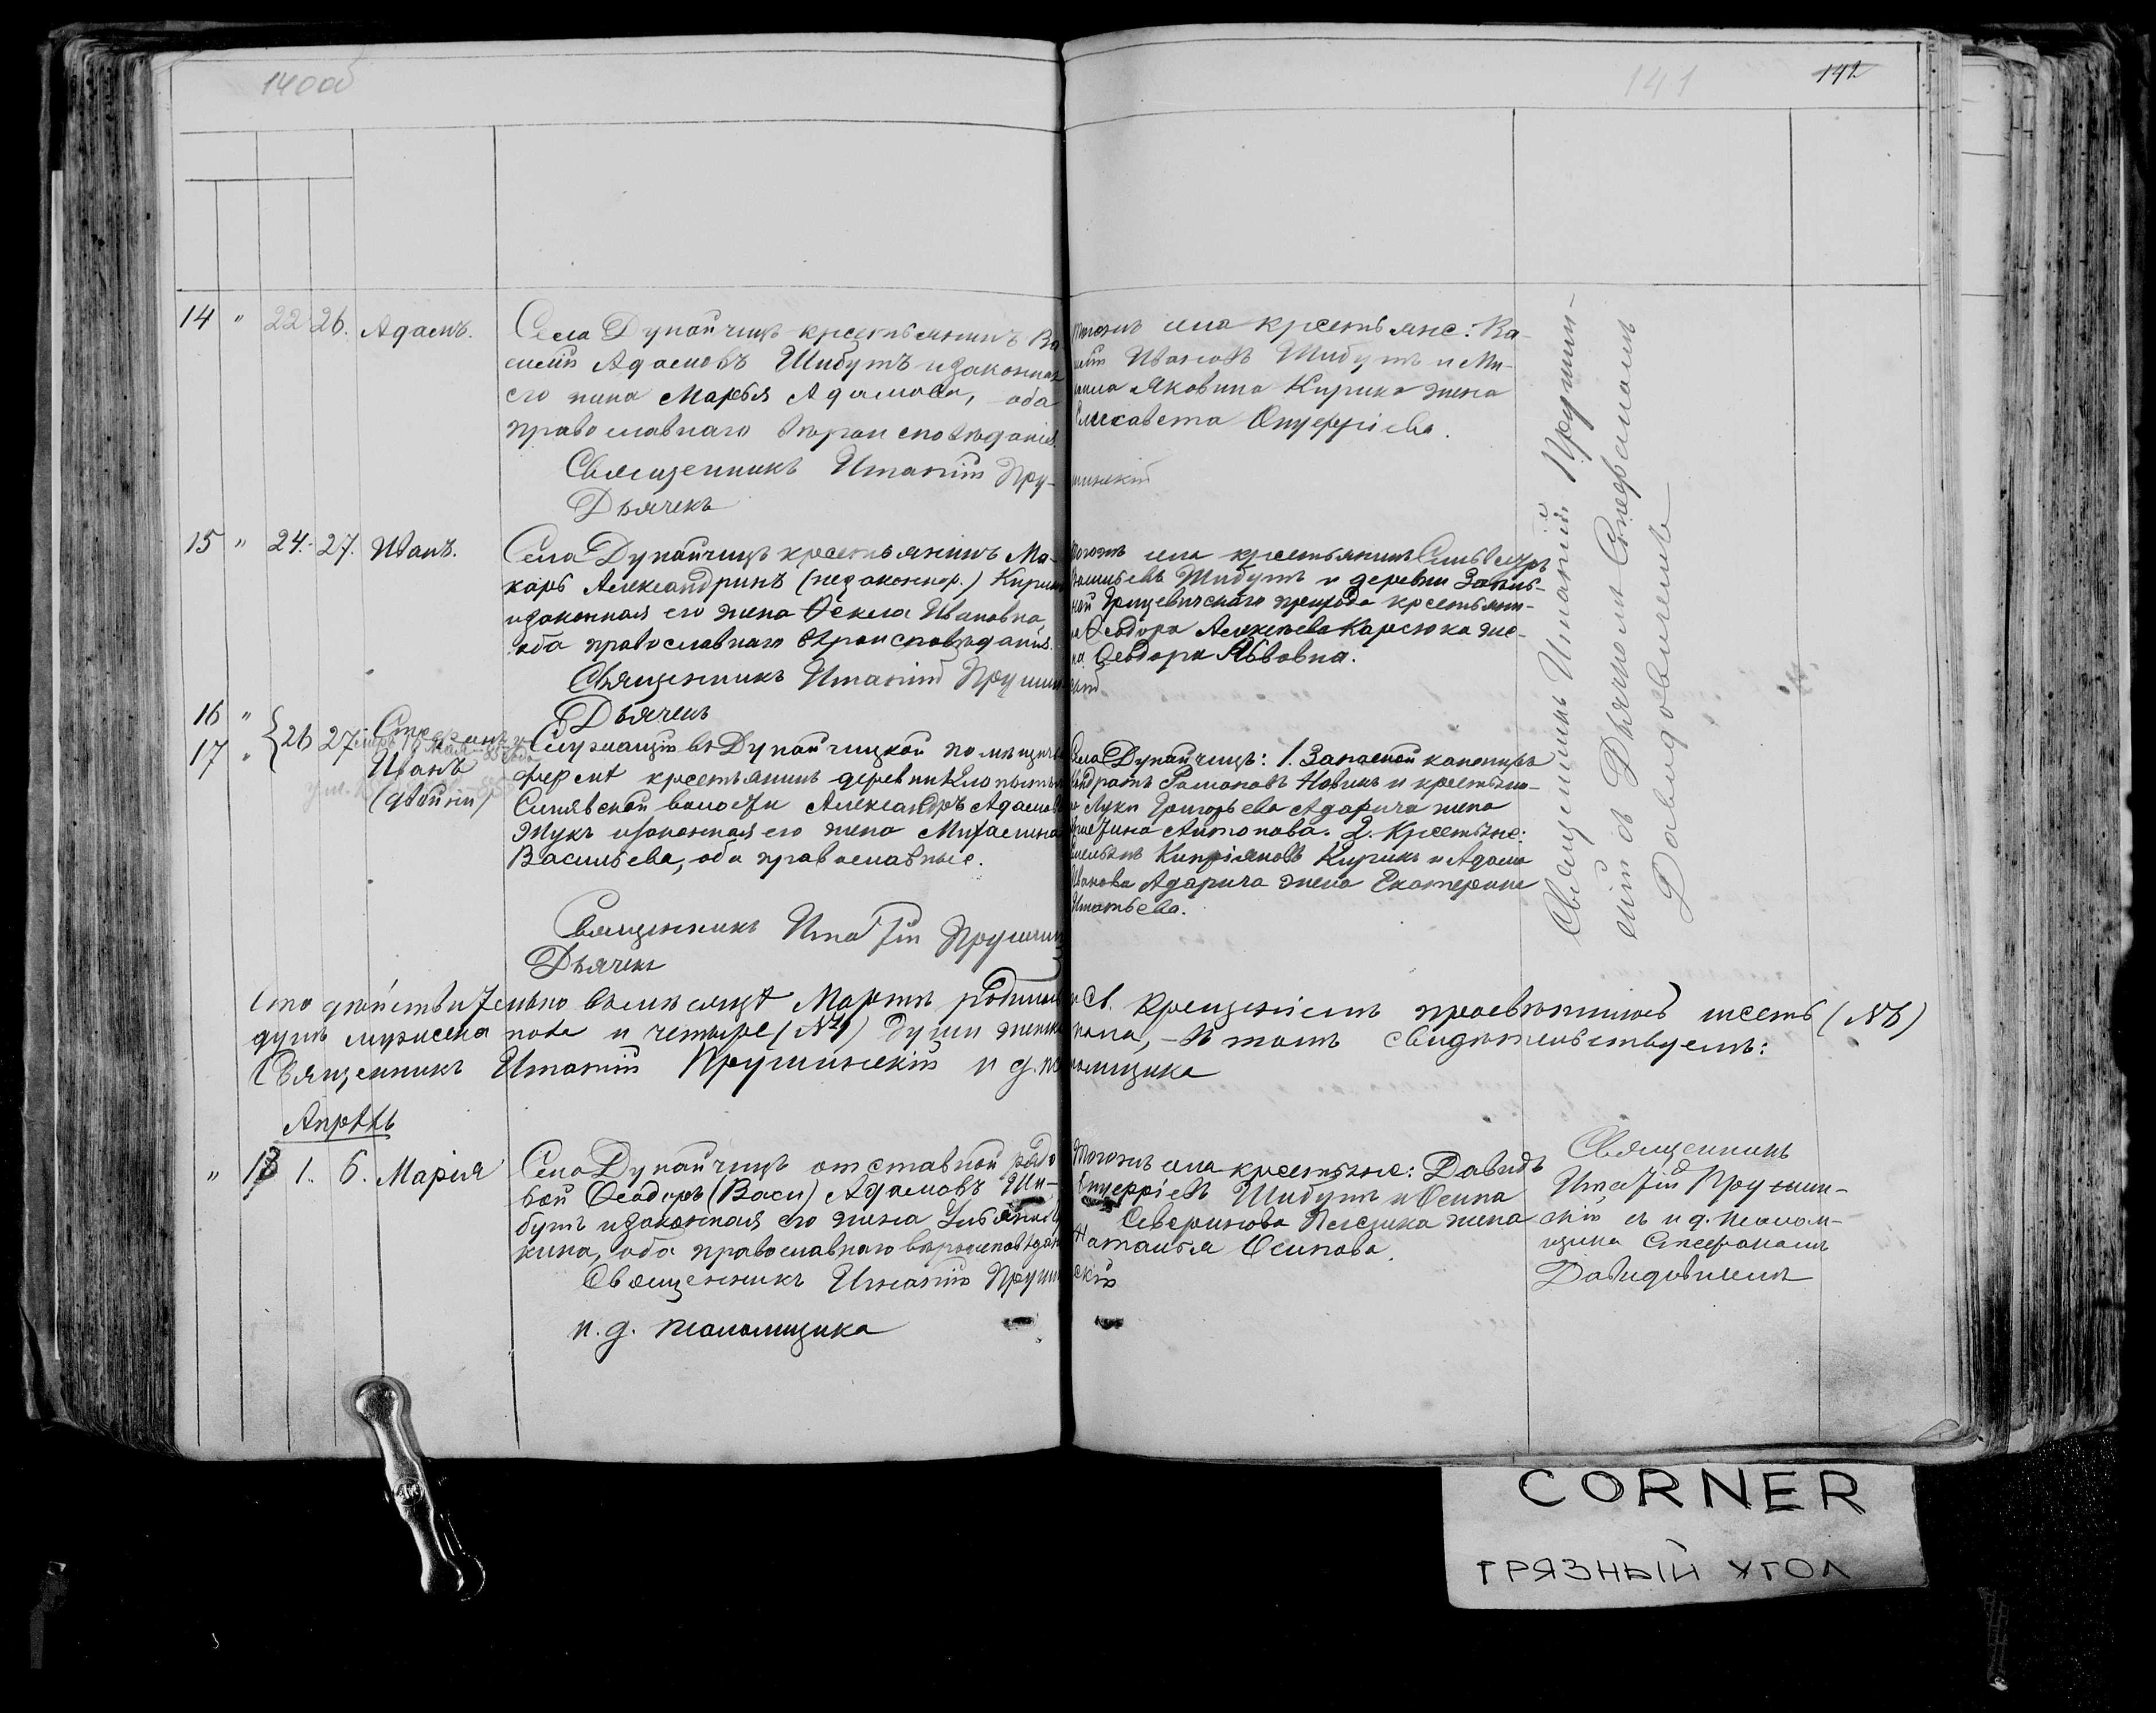 140об
141
142
14 " 22 26. Адамъ.
Села Дунайчицъ крестьянинъ Ва
силій Адамовъ Шибутъ и законная
его жена Марья Адамова, оба
православнаго вѣроисповѣданія.
Священникъ Игнатій Пру-
Дьячекъ
тогожъ села крестьяне: Ва-
силій Ивановъ Шибутъ и Ми-
хаила Яковина Кирика жена
Елисавета Онуфріева.
шинскій
15 " 24. 27. Иванъ.
Села Дунайчицъ крестьянинъ Ма-
каръ Александринъ (незаконнор.) Кирик
и законная его жена Ѳекла Ивановна,
оба православнаго вѣроисповѣданія.
Священникъ Игнатій Прушин
Дьячекъ
тогожъ села крестьянинъ Сильвестръ
Васильевъ Шибутъ и деревни
Грицевичскаго прихода крестьяни-
на Ѳеодора Алексѣева жe-
на Ѳеодора Львовна.
скій
16 "
17 " 26 27 Стефанъ и
Иванъ
(двойни)
Служащій въ Дунайчицкой помѣщичь
фермѣ крестьянинъ деревни
Синявской волости Александръ Адамовъ
Жукъ и законная его жена Михалина
Васильева, оба православные.
Священникъ Игнатій Прушин
Дьячекъ
Села Дунайчицъ: 1. Запасной канониръ
Кондратъ Романовъ Новикъ и крестьяни-
на Луки Григорьева Адарича жена
Антонова. 2. Крестьяне:
Емельянъ Кипріяновъ Кирикъ и Адама
Иванова Адарича жена Екатерина
Игнатьева.
Священникъ Игнатій Прушин-
скій съ Дьячкомъ Стефаномъ
Давидовичемъ
Что дѣйствительно въ семъ мѣсяцѣ Мартѣ родилось и св. крещеніемъ просвѣтилось шесть (№6)
душъ мужеска пола и четыре (№4) души женска пола, - въ томъ свидѣтельствуемъ:
Священникъ Игнатій Прушинскій и д. пономщика
Апрѣль
" 13 1. 6. Марія
Села Дунайчицъ отставной рядо
вой Ѳеодоръ (Васи) Адамовъ Ши-
бутъ и законная его жена
оба православнаго вѣроисповѣдан
Священникъ Игнатій Прушин
и. д. поломщика
Тогожъ села крестьяне: Давидъ
Онуфріевъ Шибутъ и Осипа
Северинова жена
Наталія Осипова.
скій
Священникъ
Игнатій Прушин-
скій съ и д. поном-
щика Стефаномъ
Давидовичемъ
CORNER
ГРЯЗНЫЙ УГОЛ